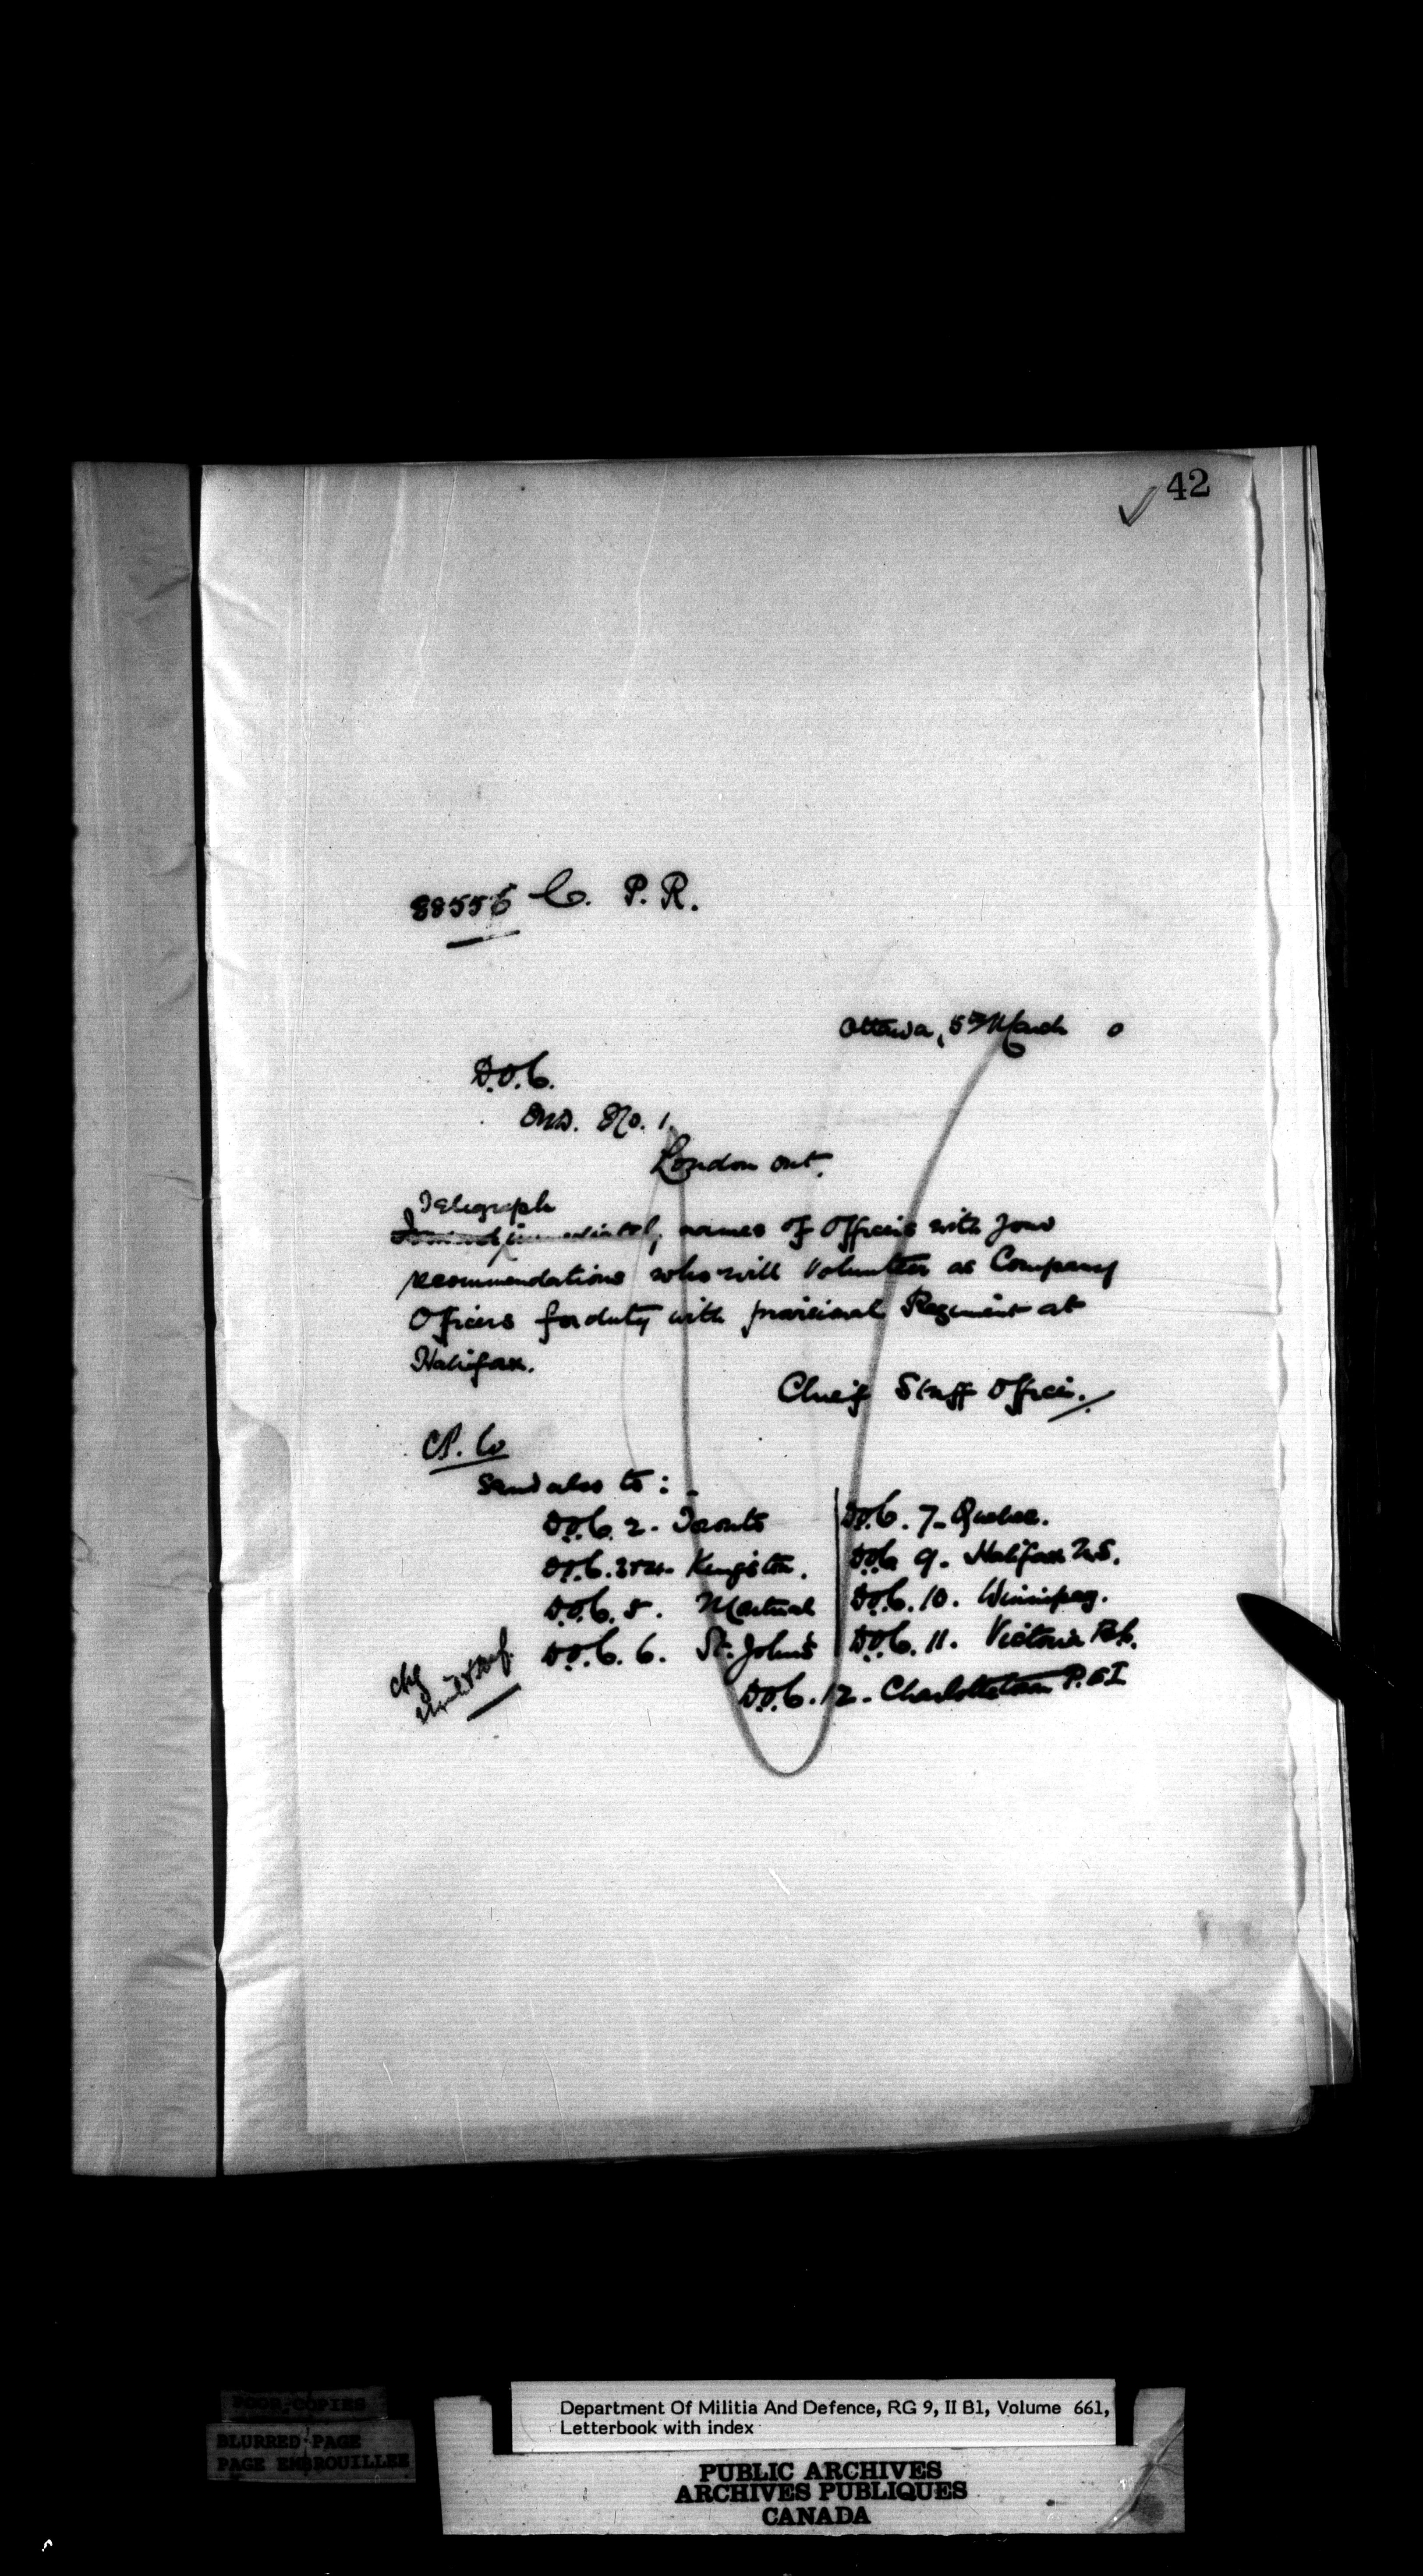 42
88556 C. P. R.
Ottawa, 5th March 0
D.O.C.
M.D. No. 1.
London Ont.
Telegraph
names of Officers with your
recommendations who will Volunteer as Company
Officers for duty with provisional Regiment at
Halifax.
Chief Staff Officer.
Send also to :-
D.O.C. 2. Toronto
D.O.C. 3 & 4. Kingston.
D.O.C. 5. Montreal
D.O.C. 6. St. John's
D.O.C. 7. Quebec.
D.O.C. 9. Halifax N.S.
D.O.C. 10. Winnipeg.
D.O.C. 11. Victoria B.C.
D.O.C. 12. Charlottetown P.E.I
chg
Mil & Def.
POOR COPIES
BLURRED PAGE
PAGE EMBROUILLEE
Department Of Militia And Defence, RG 9, II B1, Volume 661,
Letterbook with index
PUBLIC ARCHIVES
ARCHIVES PUBLIQUES
CANADA